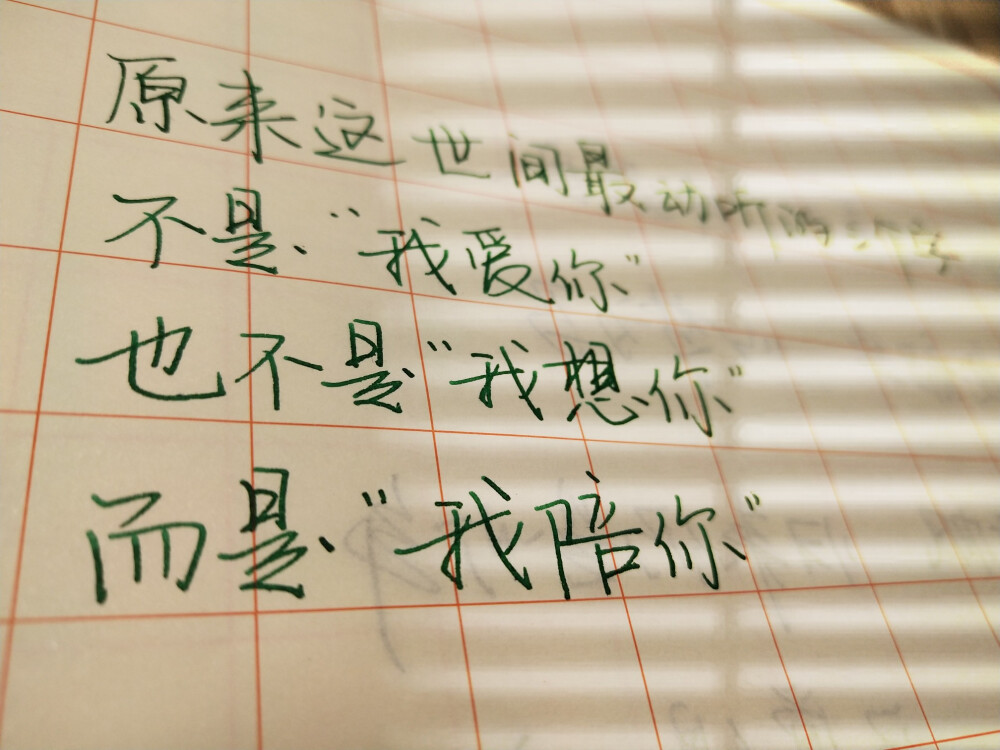 原来这世间最动听的三个字
不是“我爱你”
也不是“我想你”
而是“我陪你”